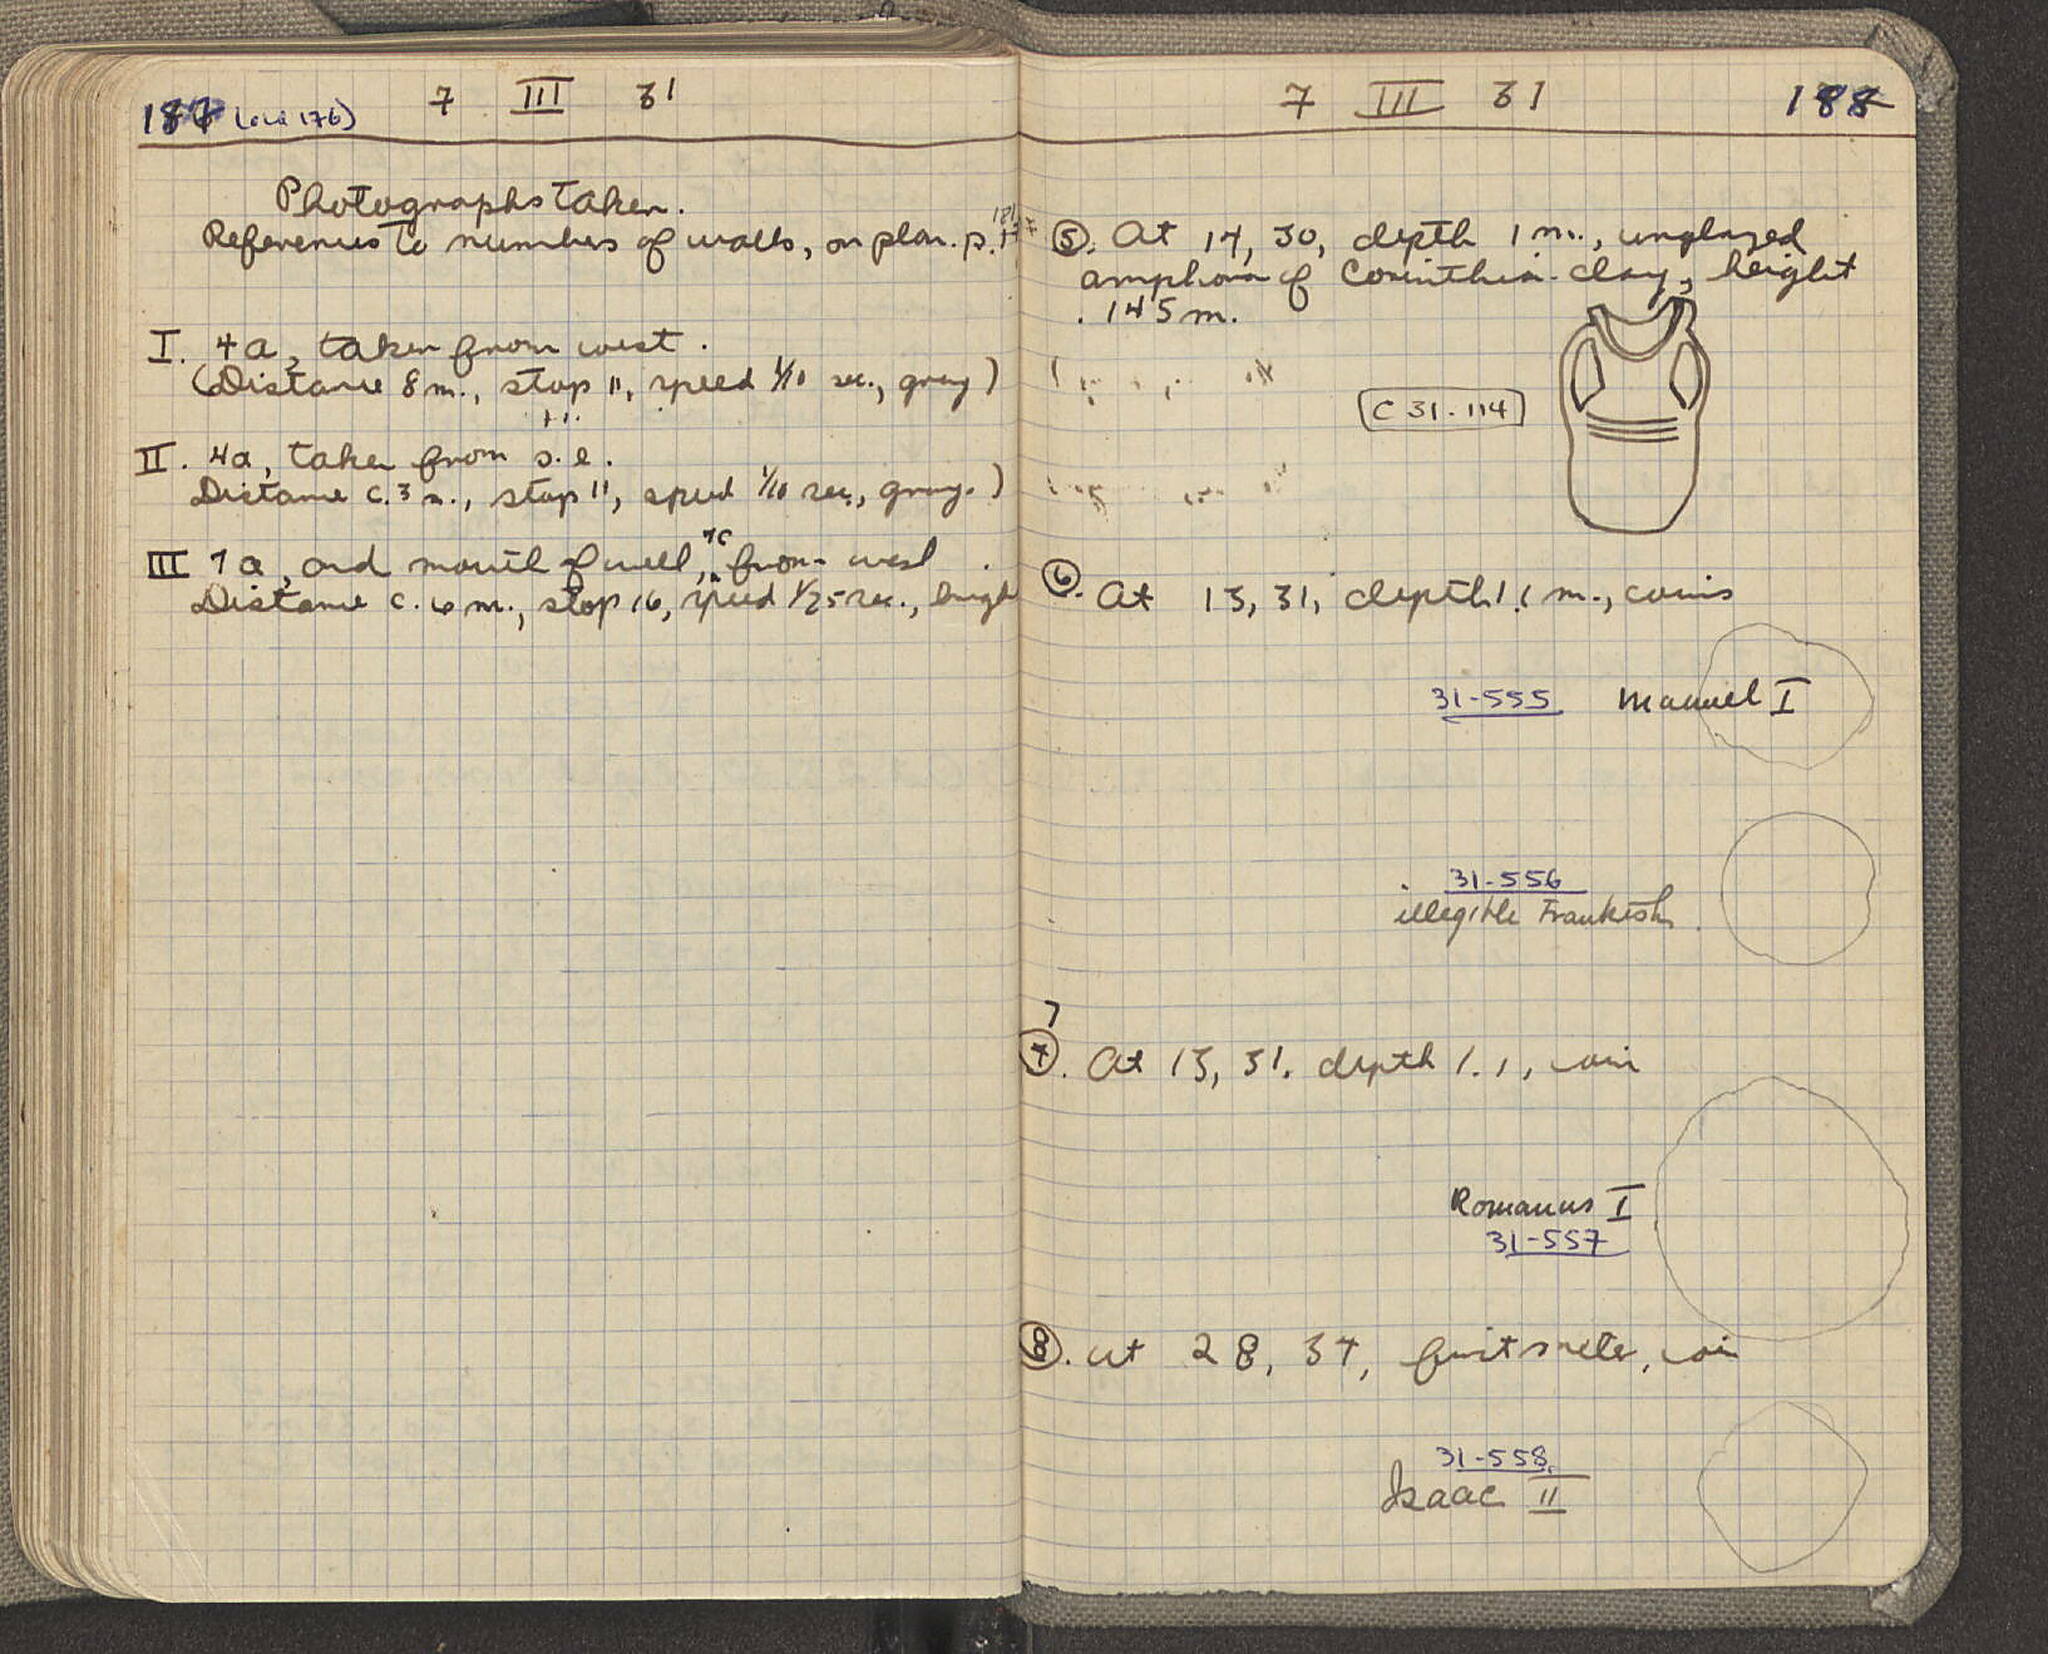 187 (old 176) 7 III 31
Photographs taken.
References to numbers of walls, on plan. p.
I. 4a, taken from west.
(Distance 8 m., stop 11, speed 1/10 sec., gray)
II. 4a, taken from s.e.
Distance c. 3 m., stop 11, speed 1/10 sec., gray.)
III 7a, and mouth of well, 7c from west
Distance c. 6 m., stop 16, speed 1/25 sec., bright
7 III 31 188
5. At 14, 30, depth 1 m., unglazed
amphora of Corinthian clay, height
.145 m.
C 31-114
6. At 13, 31, depth 1.1 m., coins
31-555 Manuel I
31-556
illegible Frankish
7
7. At 13, 31, depth 1.1, coin
Romanus I
31-557
8. At 28, 37, first meter, coin
31-558
Isaac II